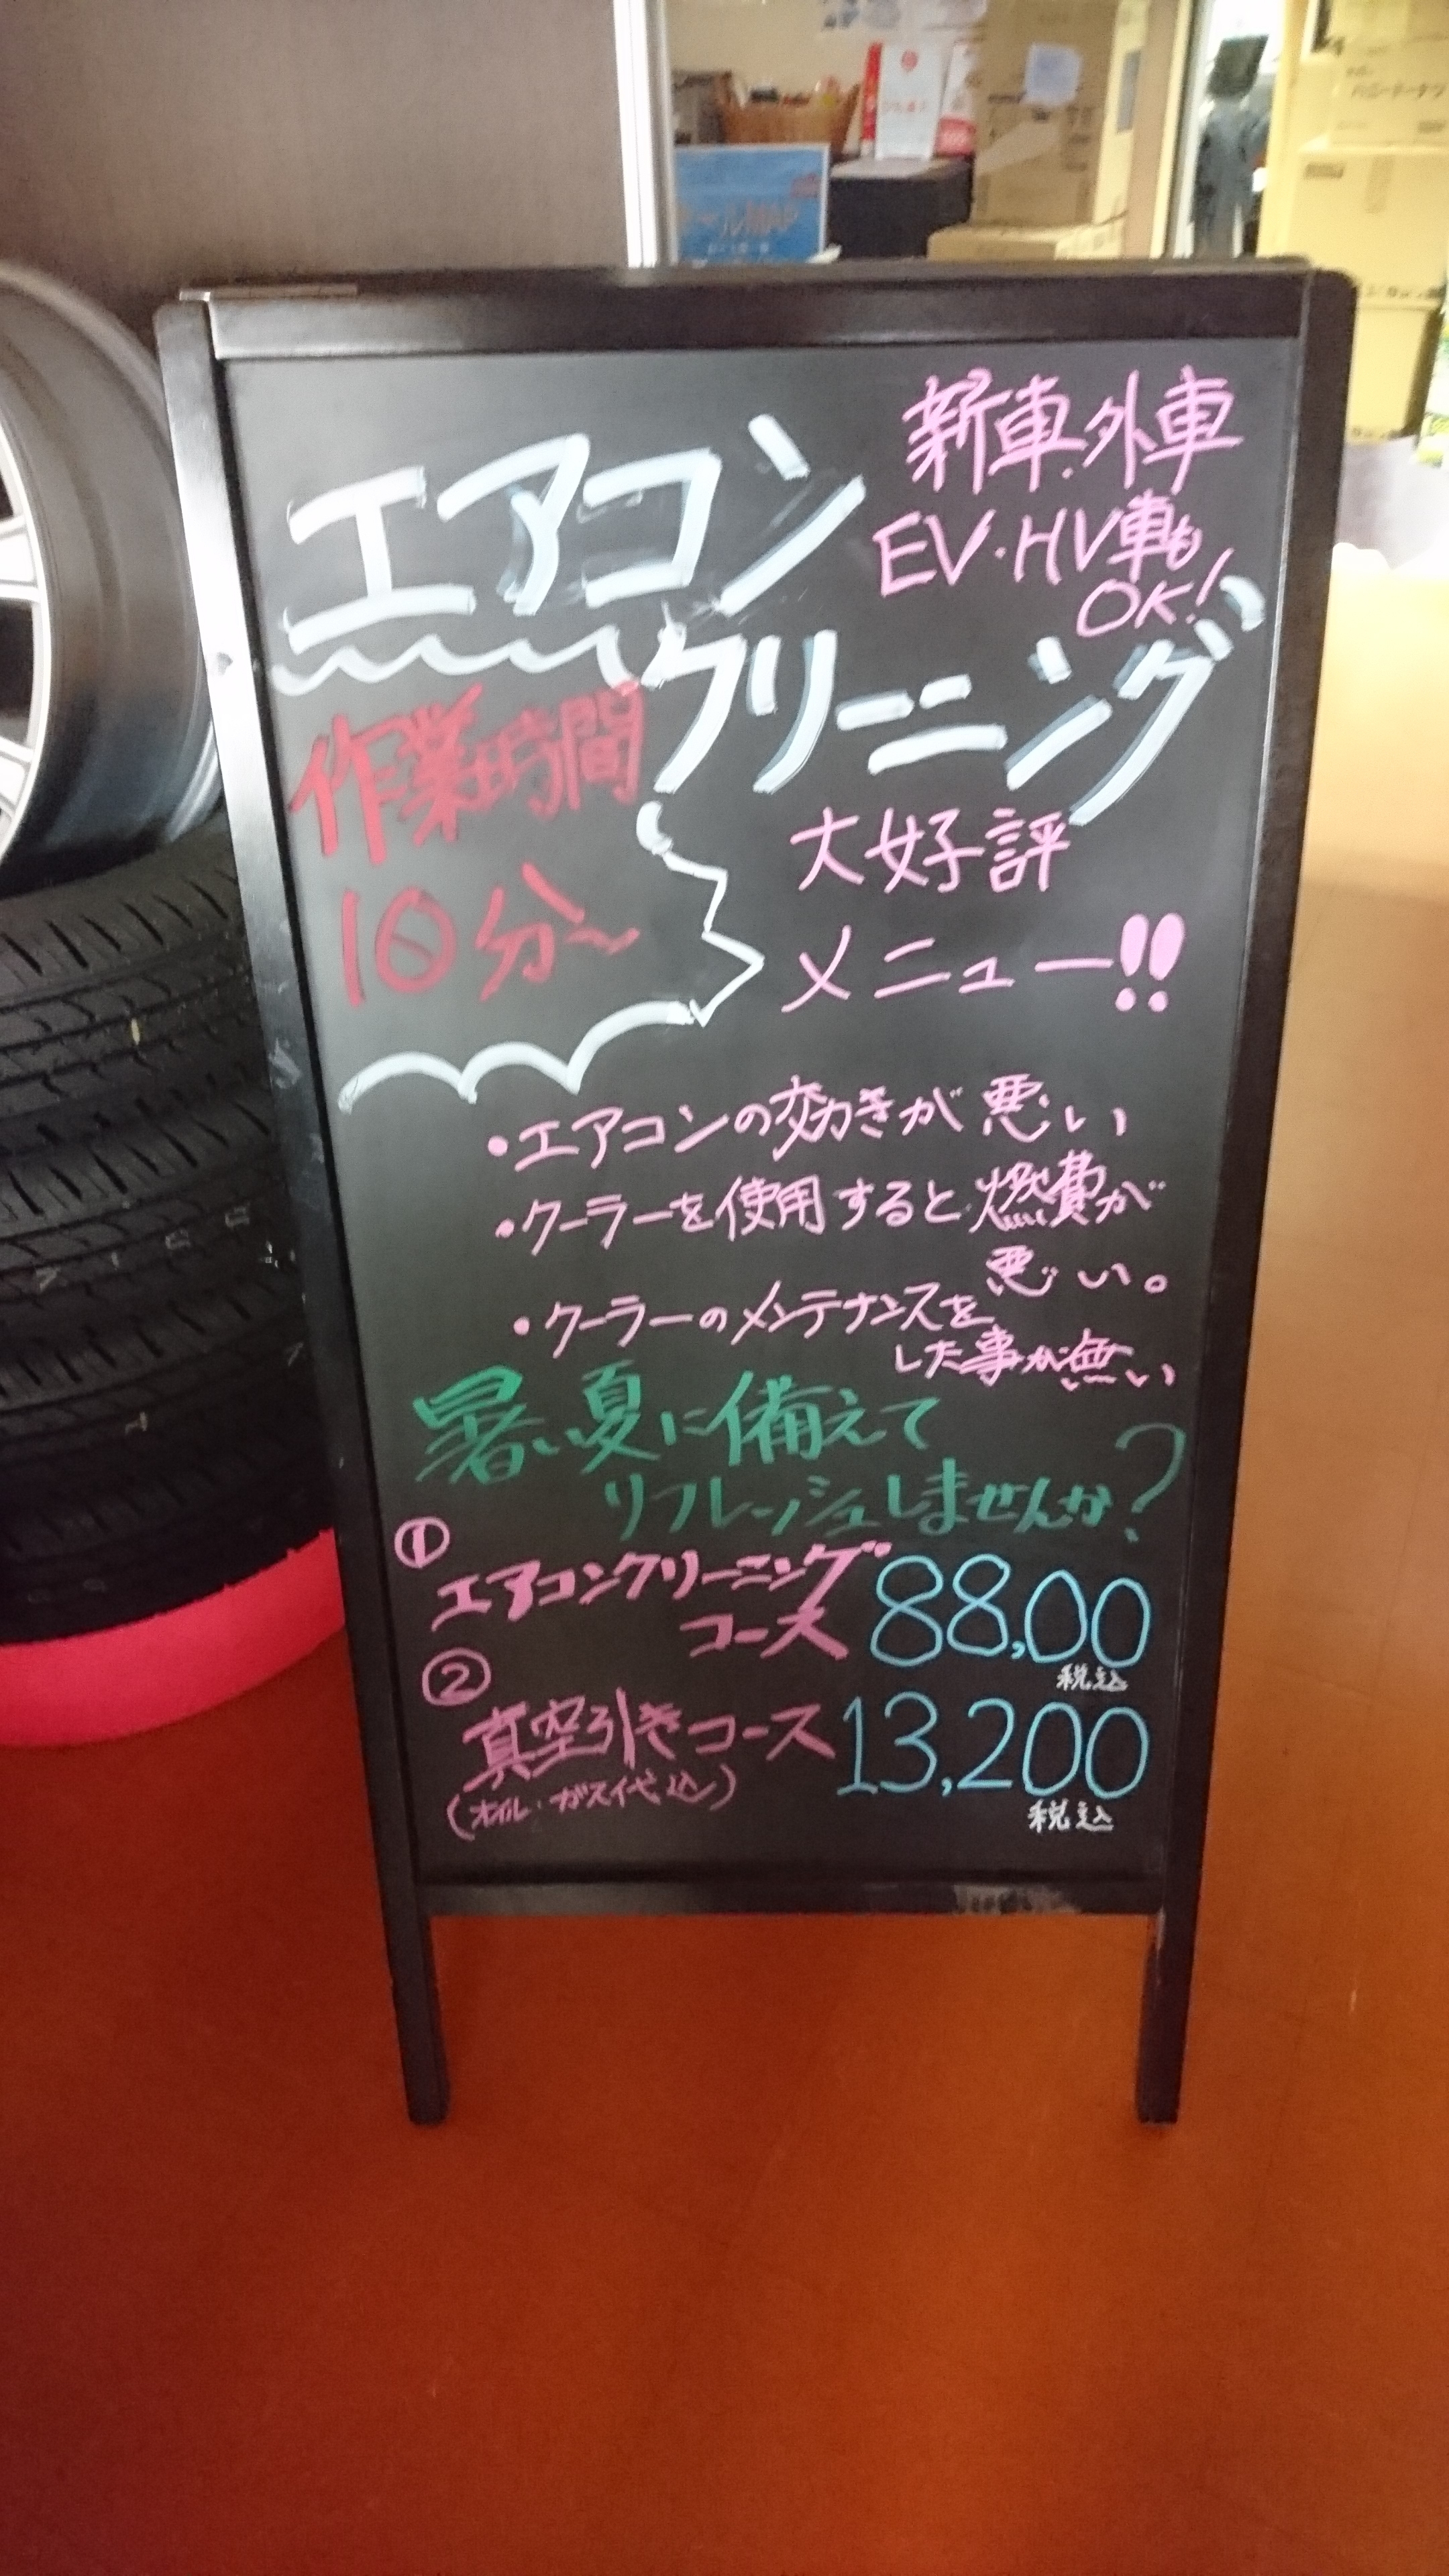 新車・外車
EV・HV車も
OK!
エアコン
クリーニング
作業時間
10分〜
大好評
メニュー!!
・エアコンの効きが悪い
・クーラーを使用すると燃費が
悪い。
・クーラーのメンテナンスを
した事が無い
暑い夏に備えて
リフレッシュしませんか?
①
エアコンクリーニング
コース 88,00
税込
②
真空引きコース 13,200
(オイル・ガス代込)
税込